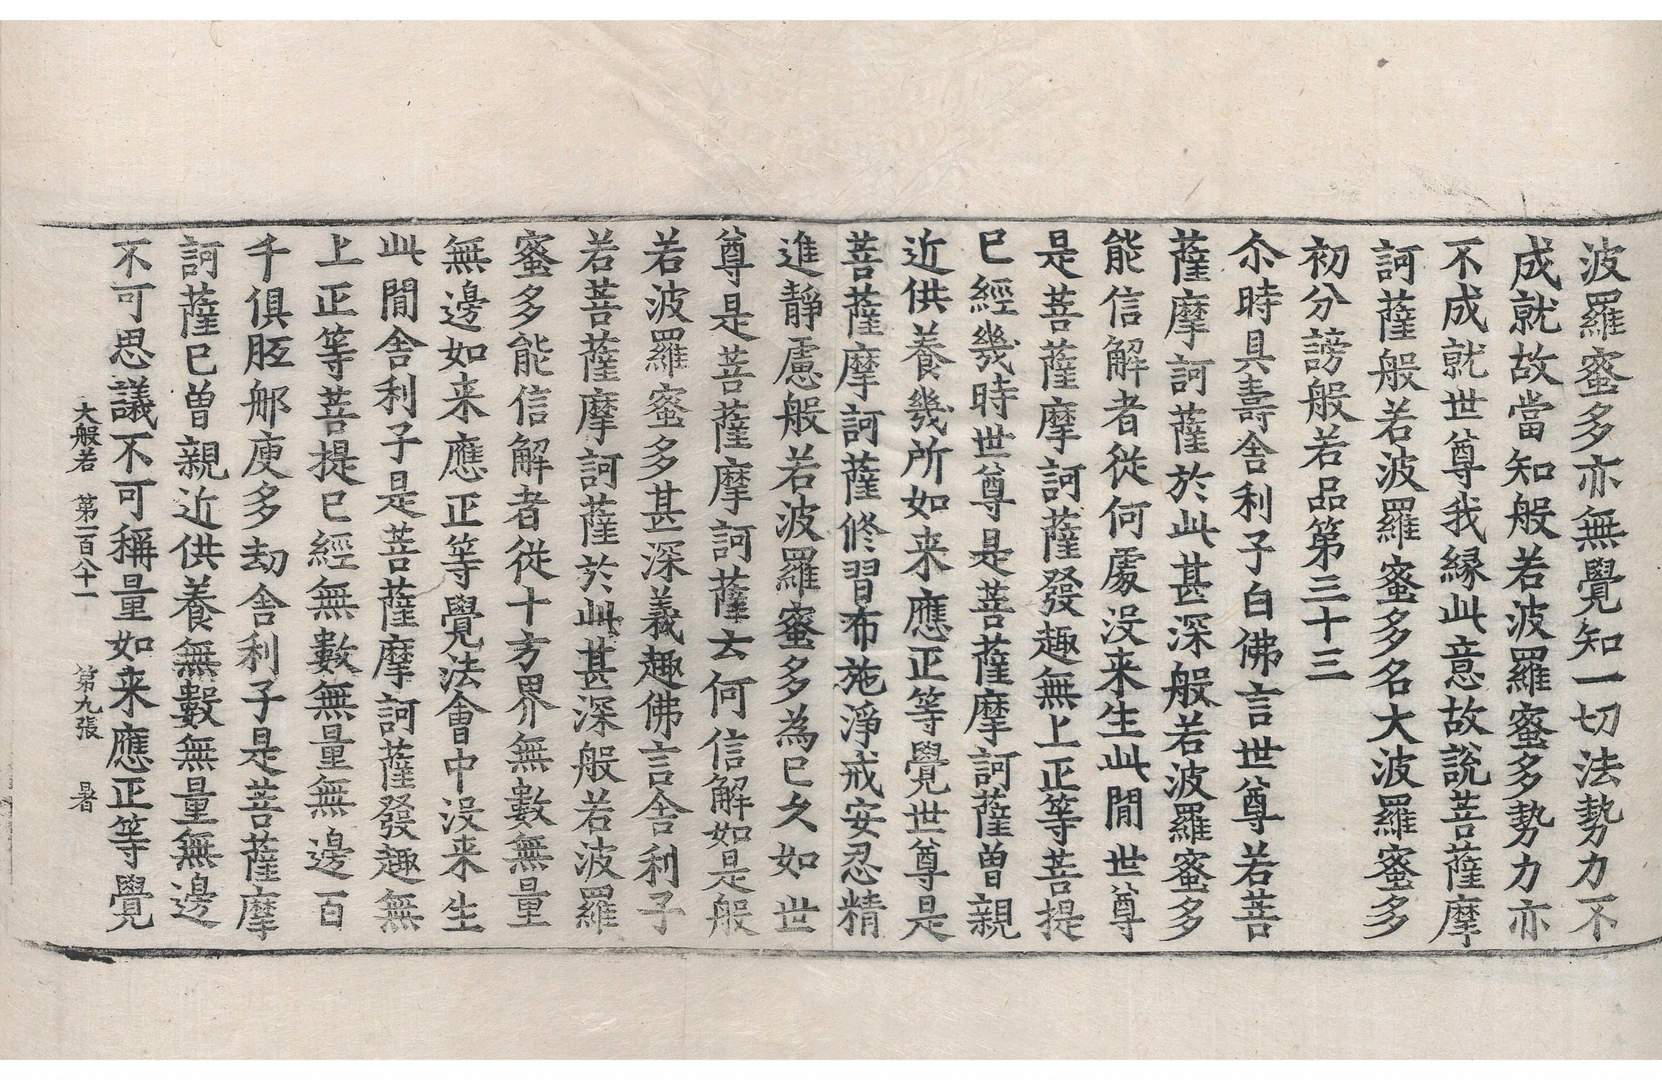 波羅蜜多亦無覺知一切法勢力不
成就故當知般若波羅蜜多勢力亦
不成就世尊我縁此意故說菩薩摩
訶薩般若波羅蜜多名大波羅蜜多
初分謗般若品第三十三
尒時具壽舍利子白佛言世尊若菩
薩摩訶薩於此甚深般若波羅蜜多
能信解者從何處没来生此閒世尊
是菩薩摩訶薩發趣無上正等菩提
已經幾時世尊是菩薩摩訶薩曾親
近供養幾所如来應正等覺世尊是
菩薩摩訶薩修習布施淨戒安忍精
進靜慮般若波羅蜜多為已久如世
尊是菩薩摩訶薩云何信解如是般
若波羅蜜多甚深義趣佛言舍利子
若菩薩摩訶薩於此甚深般若波羅
蜜多能信解者從十方界無數無量
無邊如来應正等覺法會中没来生
此閒舍利子是菩薩摩訶薩發趣無
上正等菩提已經無數無量無邊百
千俱胝那庾多劫舍利子是菩薩摩
訶薩已曾親近供養無數無量無邊
不可思議不可稱量如来應正等覺
大般若 第一百八十一 第九張